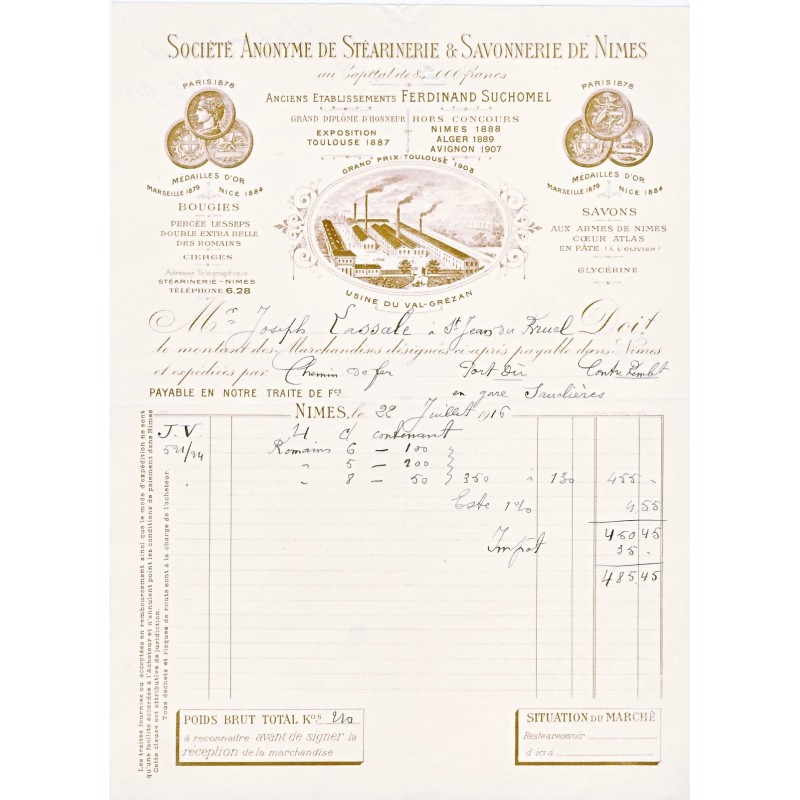 SOCIÉTÉ ANONYME DE STÉARINERIE & SAVONNERIE DE NIMES
au Capital de 000 francs
ANCIENS ETABLISSEMENTS FERDINAND SUCHOMEL
GRAND DIPLÔME D'HONNEUR
EXPOSITION
TOULOUSE 1887
HORS CONCOURS
NIMES 1888
ALGER 1889
AVIGNON 1907
GRAND PRIX: TOULOUSE 1908
PARIS 1878
MÉDAILLES D'OR
MARSEILLE 1879 NICE 1884
BOUGIES
PERCÉE LESSEPS
DOUBLE EXTRA BELLE
DES ROMAINS
CIERGES
Adresse Télégraphique
STÉARINERIE - NIMES
TÉLÉPHONE 6.28
PARIS 1878
MÉDAILLES D'OR
MARSEILLE 1879 NICE 1884
SAVONS
AUX ARMES DE NIMES
CŒUR ATLAS
EN PÂTE (À L'OLIVIER)
GLYCÉRINE
USINE DU VAL-GRÉZAN
Mr Joseph Vassale à St Jean du Bruel Doit
le montant des Marchandises désignées ci-après payable dans Nîmes
et expédiées par Chemin de fer Port Dû Contre Rembt
PAYABLE EN NOTRE TRAITE DE Fcs en gare Sauclières
NIMES, le 22 Juillet 1916
J.V. 4 c/ contenant
521/24 Romains 6 — 100
" 5 — 200
" 8 — 50 350 à 130 455 -
Este 1% 4,55
450 45
Impôt 35 -
485,45
Les traites fournies ou acceptées en remboursement ainsi que le mode d'expédition ne sont
qu'une facilité accordée à l'Acheteur et n'annulent point les conditions de paiement dans Nimes
Cette clause est attributive de juridiction.
Tous déchets et risques de route sont à la charge de l'acheteur.
POIDS BRUT TOTAL Kos 210
à reconnaître avant de signer la
réception de la marchandise
SITUATION DU MARCHÉ
Reste a recevoir
d'ici a